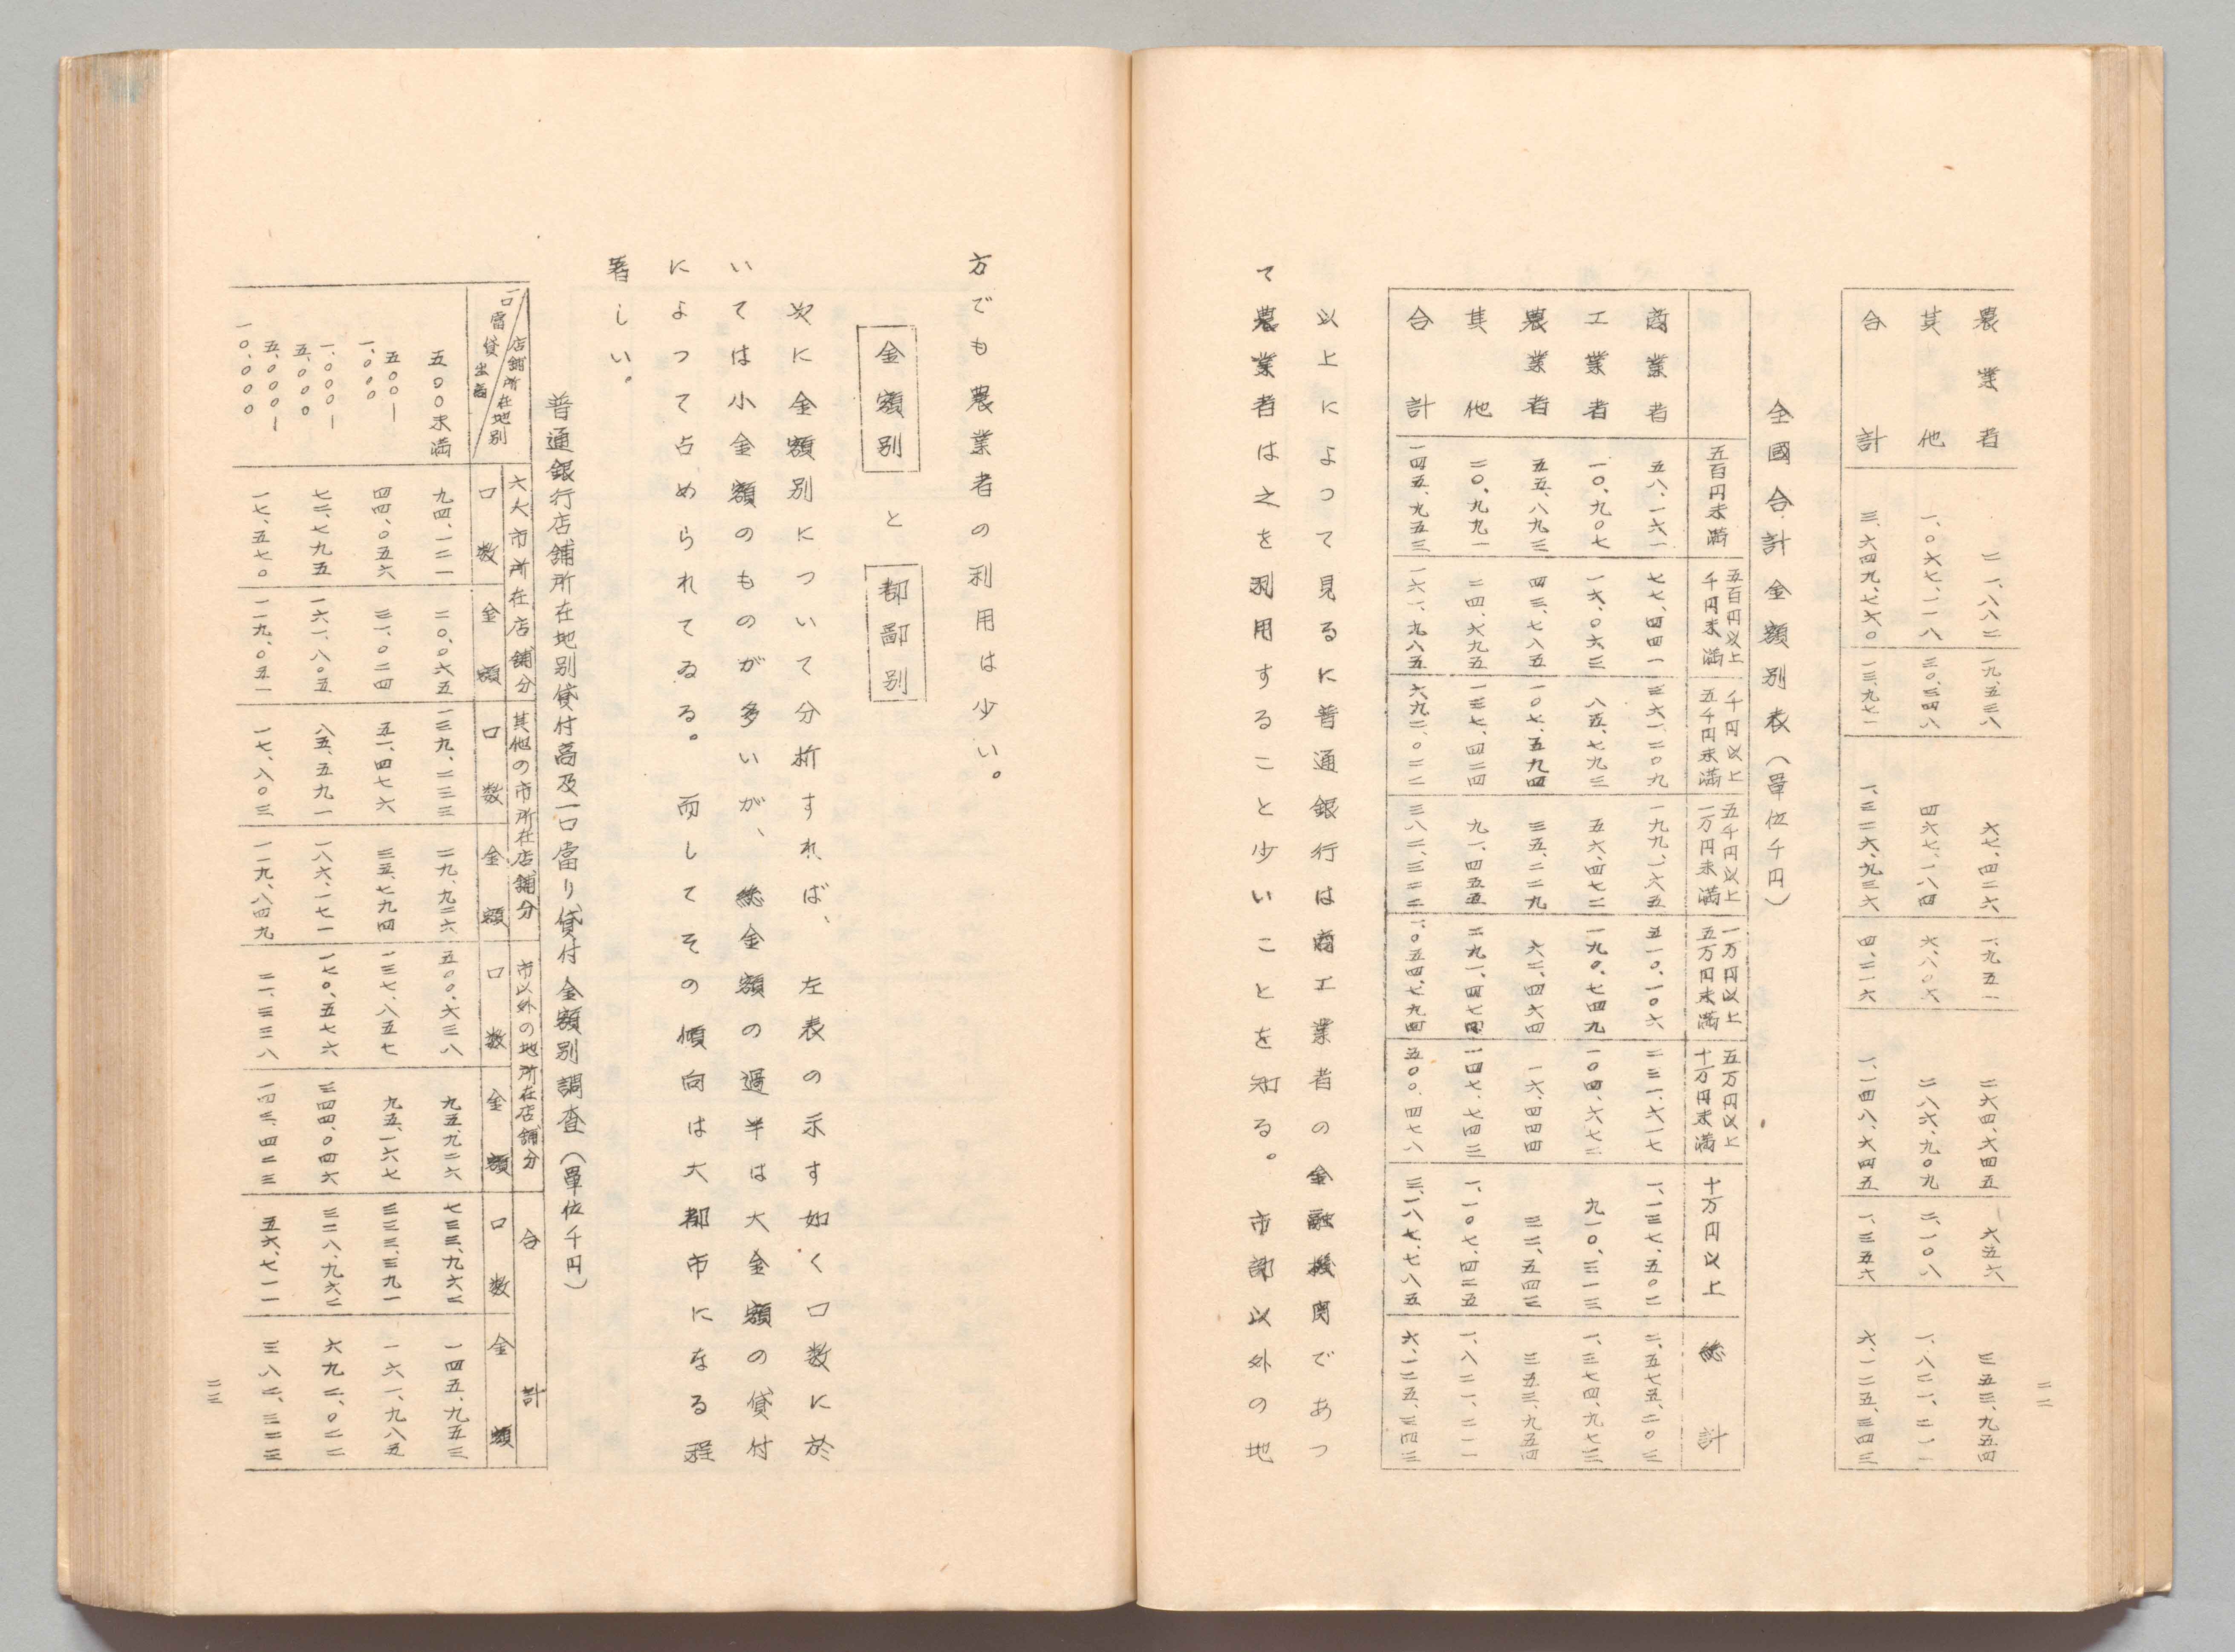 農業者 二一、八八二 一九、五三八 六七、四二六 一、九五一 二六四、六四五 六五六 三五三、九五四
其他 一、〇六七、一一八 三〇、三四八 四六七、一八四 六、八〇六 二八六、九〇九 二、一〇八 一、八二一、二一一
合計 三、六四九、七六〇 一三、九七一 一、三二六、九三六 四、二一六 一、一四八、六四五 一、三五六 六、一二五、三四三
全國合計金額別表（單位千円）
五百円未満 五百円以上千円未満 千円以上五千円未満 五千円以上一万円未満 一万円以上五万円未満 五万円以上十万円未満 十万円以上 総計
商業者 五八、一六一 七七、四四一 三六一、二〇九 一九九、一六五 五一〇、一〇六 二三一、六一七 一、一三七、五〇二 二、五七五、二〇三
工業者 一〇、九〇七 一六、〇六三 八五、七九三 五六、四七二 一九〇、七四九 一〇四、六七二 九一〇、三一三 一、三七四、九七三
農業者 五五、八九三 四三、七八五 一〇七、五九四 三五、二二九 六二、四六四 一六、四四四 三二、五四三 三五三、九五四
其他 二〇、九九一 二四、六九五 一三七、四二四 九一、四五五 二九一、四七四 一四七、七四三 一、一〇七、四二五 一、八二一、二一一
合計 一四五、九五三 一六一、九八五 六九二、〇二二 三八二、三二二 一、〇五四、七九四 五〇〇、四七八 三、一八七、七八五 六、一二五、三四三
以上によつて見るに普通銀行は商工業者の金融機関であつ
て農業者は之を利用すること少いことを知る。市部以外の地
二二
方でも農業者の利用は少い。
金額別と都鄙別
次に金額別について分析すれば、左表の示す如く口数に於
いては小金額のものが多いが、総金額の過半は大金額の貸付
によつて占められてゐる。而してその傾向は大都市になる程
著しい。
普通銀行店舗所在地別貸付高及一口當り貸付金額別調査（單位千円）
店舗所在地別 一口當貸出高 六大市所在店舗分 其他の市所在店舗分 市以外の地所在店舗分 合計
口数 金額 口数 金額 口数 金額 口数 金額
五〇〇未満 九四、一二一 二〇、〇六五 一三九、二三三 二九、九二六 五〇〇、六三八 九五、九二六 七三三、九六二 一四五、九五三
五〇〇—一、〇〇〇 四四、〇五六 三一、〇二四 五一、四七六 三五、七九四 一三七、八五七 九五、一六七 二三三、三九一 一六一、九八五
一、〇〇〇—五、〇〇〇 七二、七九五 一六一、八〇五 八五、五九一 一八六、一七一 一七〇、五七六 三四四、〇四六 三二八、九六二 六九二、〇二二
五、〇〇〇—一〇、〇〇〇 一七、五七〇 一一九、〇五一 一七、八〇三 一一九、八四九 二一、三三八 一四三、四二三 五六、七一一 三八二、三二三
二三